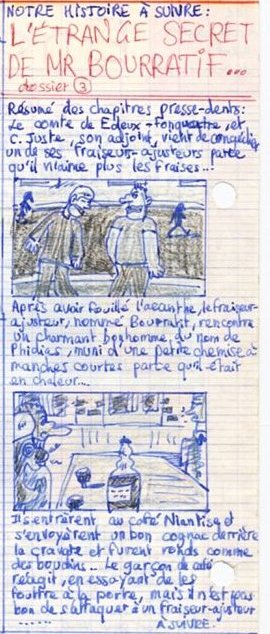 NOTRE HISTOIRE À SUIVRE :
L'ÉTRANGE SECRET
DE MR BOURRATIF...
dossier 3
Résumé des chapitres presse-dents:
Le comte de , et
C. Juste, son adjoint, vient de congédier
un de ses fraiseurs-ajusteurs parce
qu'il n'aime plus les fraises..!
Après avoir fouillé l'acanthe, le fraiseur-
ajusteur, nommé Bourratif, rencontre
un charmant bonhomme, du nom de
Phidias, muni d'une petite chemise à
manches courtes parce qu'il était
en chaleur...
Ils entrèrent au café et
s'envoyèrent un bon cognac derrière
la cravate et furent ronds comme
des boudins... Le garçon de café
réagit, en essayant de les
fouttre à la portre, mais il n'est pas
bon de s'attaquer à un fraiseur-ajusteur
......
À SUIVRE.